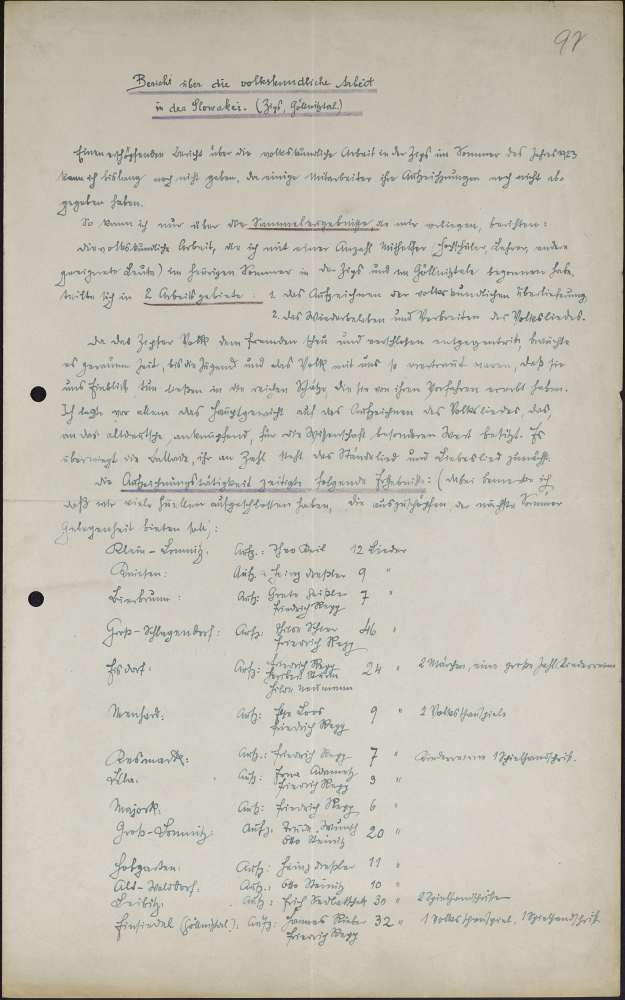 98
Bericht über die volkskundliche Arbeit
in der Slowakei. (Zips, Göllnitztal.)
Einen erschöpfenden Bericht über die volkskundliche Arbeit in der Zips im Sommer des Jahres 1923
kann ich bislang noch nicht geben, da einige Mitarbeiter ihre Aufzeichnungen noch nicht ab-
gegeben haben.
So kann ich nur über die Sammelergebnisse die mir vorliegen, berichten:
Die volkskundliche Arbeit, die ich mit einer Anzahl Mithelfer (Hochschüler, Lehrer, andere
geeignete Leute) im heurigen Sommer in der Zips und im Göllnitztale begonnen habe,
teilte sich in 2 Arbeitsgebiete: 1. das Aufzeichnen der volkskundlichen Überlieferung
2. das Wiederbeleben und Verbreiten des Volksliedes.
Da das Zipser Volk dem Fremden scheu und verschlossen entgegentritt brauchte
es geraume Zeit, bis die Jugend und das Volk mit uns so vertraut waren, daß sie
uns Einblick tun ließen in die reichen Schätze, die sie von ihren Vorfahren ererbt haben.
Ich legte vor allem das Hauptgewicht auf das Aufzeichnen des Volksliedes, das,
an das altdeutsche anknüpfend, für die Wissenschaft besonderen Wert besitzt. Es
überwiegt die Ballade, ihr an Zahl steht das Ständelied und Liebeslied zunächst.
Die Aufzeichnungstätigkeit zeitigte folgende Ergebnisse: (dabei bemerke ich,
daß wir viele Quellen aufgeschlossen haben, die auszuschöpfen der nächste Sommer
Gelegenheit bieten soll):
Klein-Lomnitz: Aufz.: Theo Keil 12 Lieder
Kniesen: Aufz.: Heinz Dreßler 9 "
Bierbrunn: Aufz: Grete Geißler 7 "
Friedrich Repp
Groß-Schlagendorf: Aufz: 46 "
Friedrich Repp
Eisdorf: Aufz: Friedrich Repp 24 " 2 Märchen, eine große Zahl Kinderreime
Hilde Neumann
Menhard: Aufz: Loos 9 " 2 Volksschauspiele
Friedrich Repp
Kesmark: Aufz.: Friedrich Repp 7 " Kinderreime 1 Spielhandschrift.
Aufz: Erna Adametz 3 "
Friedrich Repp
Majerk: Aufz: Friedrich Repp 6 "
Groß-Lomnitz: Aufz: Trude Wünsch 20 "
Otto Steinitz
Hobgarten: Aufz: Heinz Dreßler 11 "
Alt-Walddorf: Aufz.: Otto Steinitz 10 "
Leibitz: Aufz: Erich Sedlatschek 30 " 2 Spielhandschriften
Einsiedel (Göllnitztal.): Aufz: Hannes 32 " 1 Volksschauspiel, 1 Spielhandschrift
Friedrich Repp